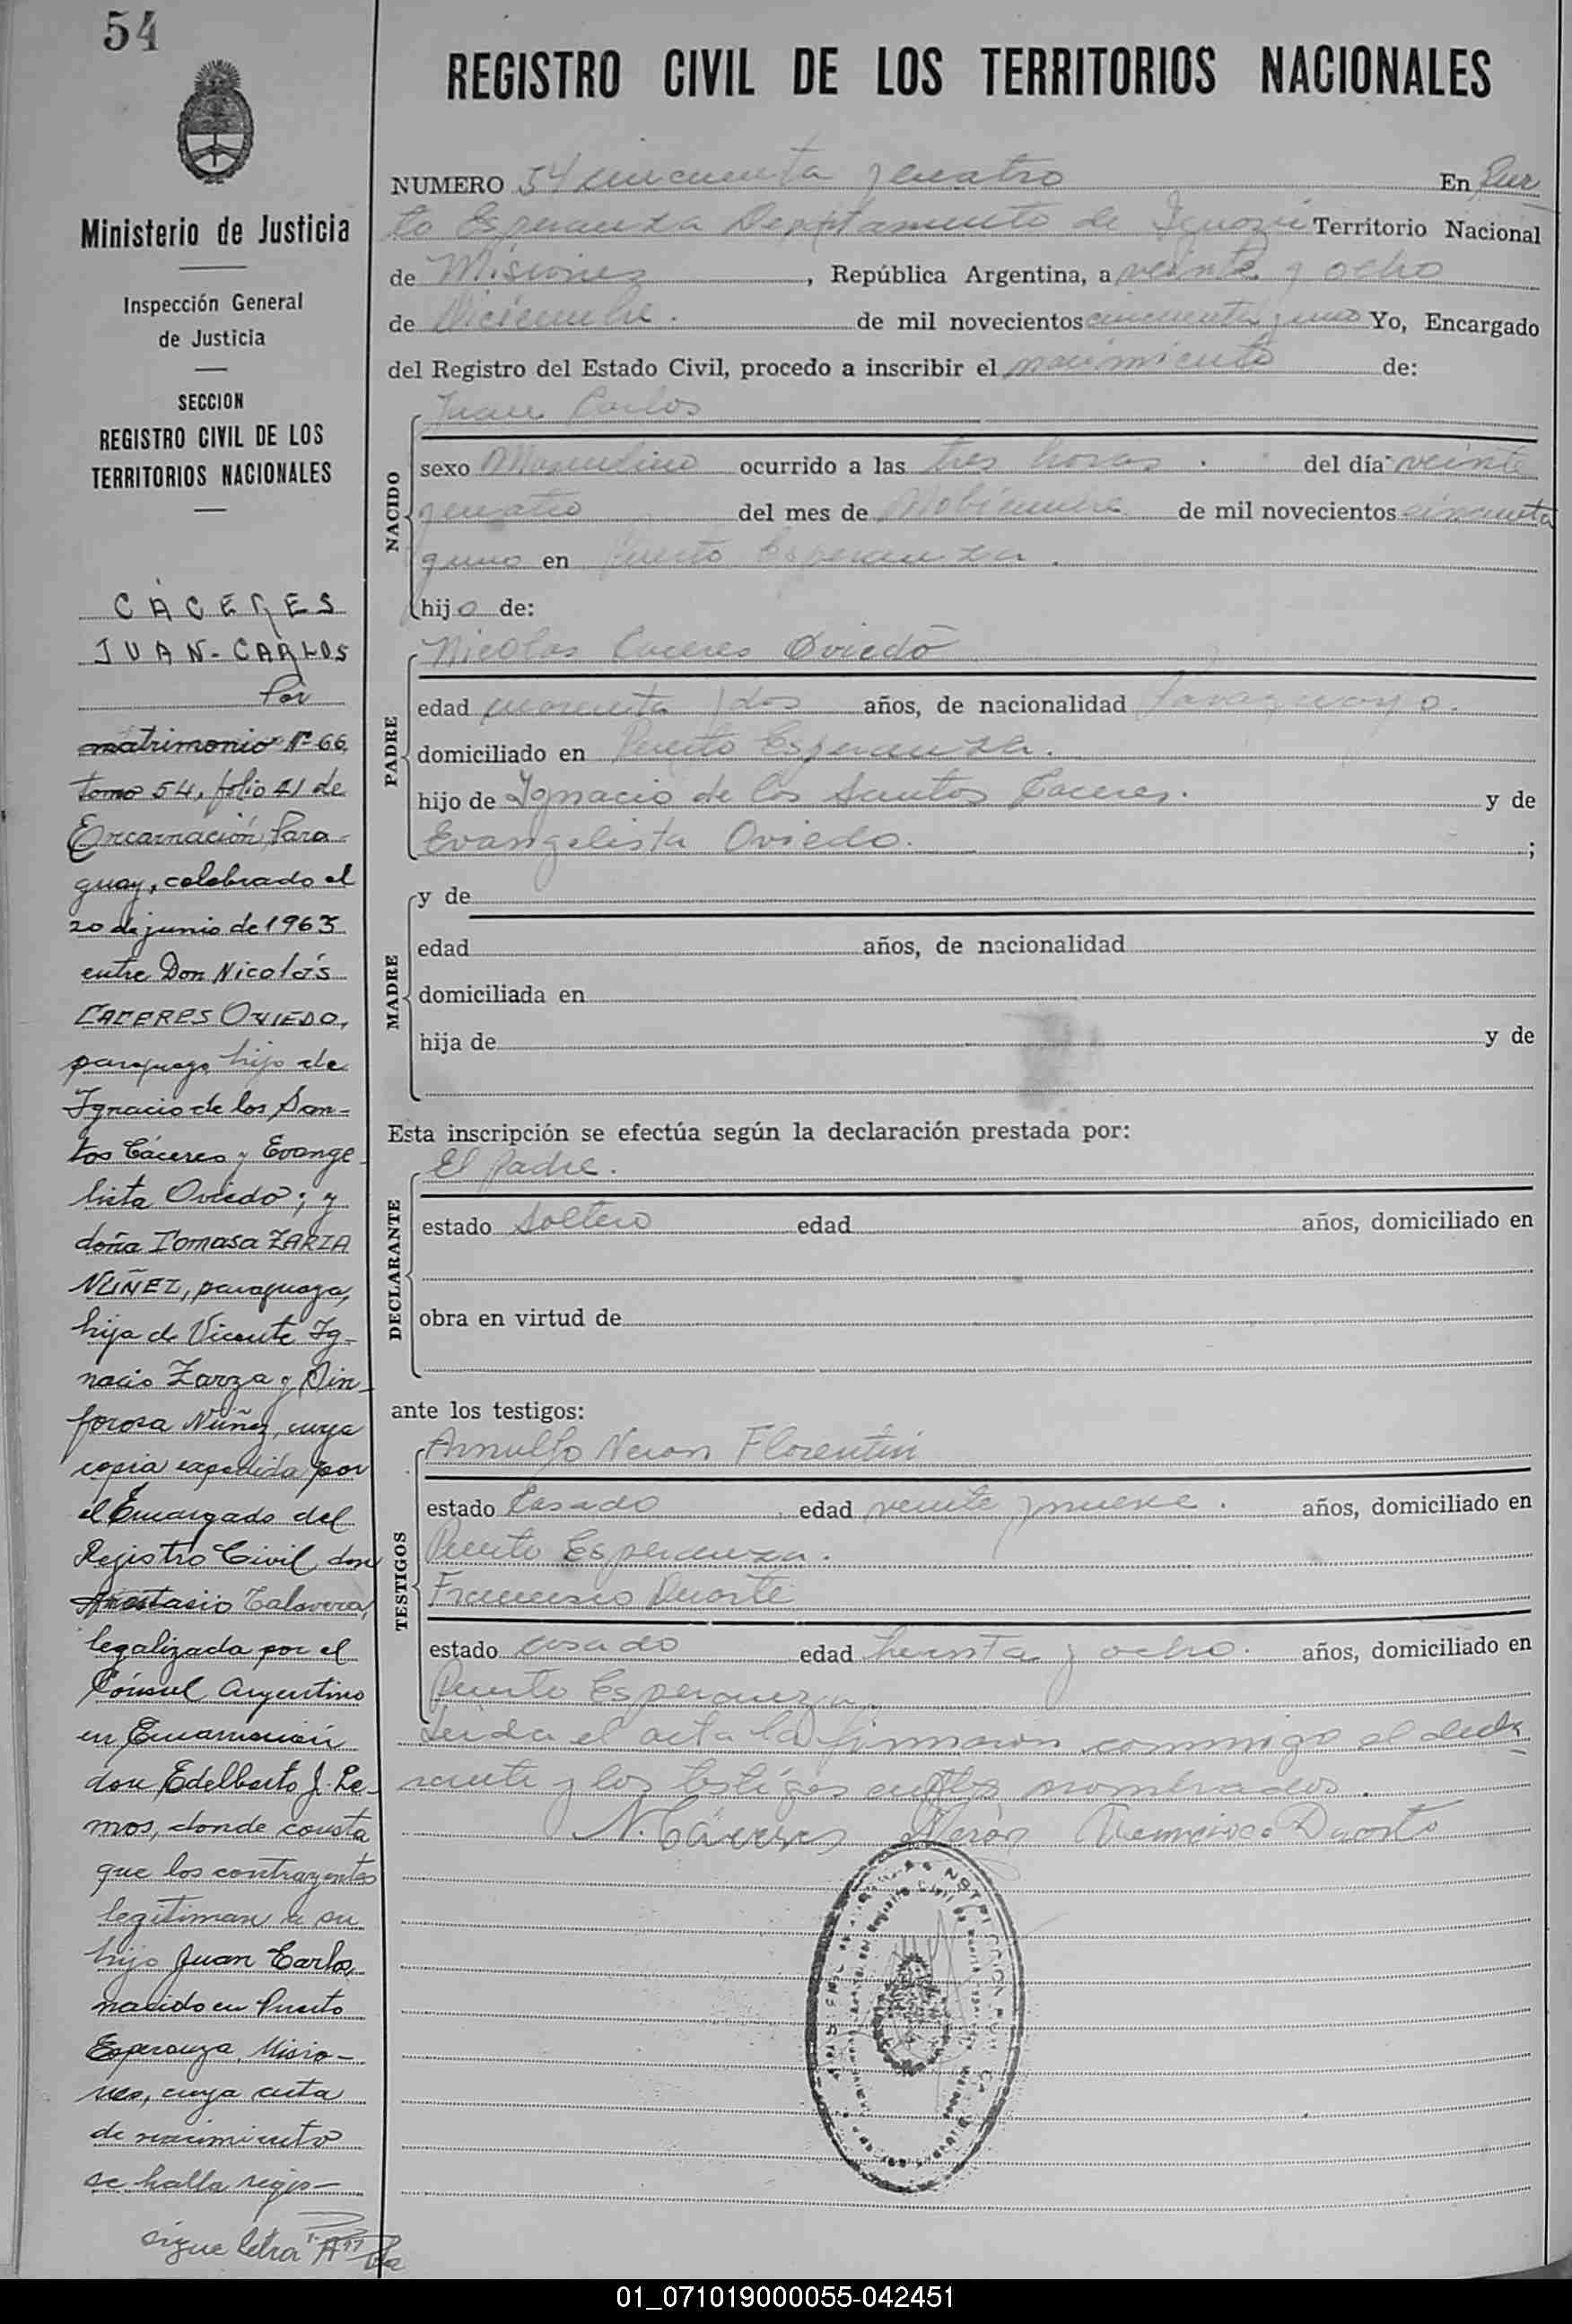 54
Ministerio de Justicia
Inspección General
de Justicia
SECCION
REGISTRO CIVIL DE LOS
TERRITORIOS NACIONALES
CÁCERES
JUAN-CARLOS
Por
matrimonio Nº 66
tomo 54, folio 41 de
Encarnación, Para-
guay, celebrado el
20 de junio de 1963
entre Don Nicolás
CACERES OVIEDO,
paraguayo, hijo de
Ignacio de los San-
tos Cáceres y Evange-
lista Oviedo; y
doña Tomasa ZARZA
NÚÑEZ, paraguaya,
hija de Vicente Ig-
nacio Zarza y Sin-
forosa Núñez, cuya
copia expedida por
el Encargado del
Registro Civil don
Anastacio Talavera,
legalizada por el
Cónsul Argentino
en Encarnación
don Edelberto J. Le-
mos, donde consta
que los contrayentes
legitiman a su
hijo Juan Carlos,
nacido en Puerto
Esperanza, Misio-
nes, cuya acta
de nacimiento
se halla regis-
sigue letra "A"
REGISTRO CIVIL DE LOS TERRITORIOS NACIONALES
NUMERO 54 cincuenta y cuatro En Puer
to Esperanza Departamento de Iguazú Territorio Nacional
de Misiones, República Argentina, a veinte y ocho
de Diciembre. de mil novecientos cincuenta y uno Yo, Encargado
del Registro del Estado Civil, procedo a inscribir el nacimiento de:
NACIDO
Juan Carlos
sexo Masculino ocurrido a las tres horas. del día veinte
y cuatro del mes de Nobiembre de mil novecientos cincuenta
y uno en Puerto Esperanza.
hijo de:
PADRE
Nicolas Caceres Oviedo
edad cuarenta y dos años, de nacionalidad Paraguayo.
domiciliado en Puerto Esperanza.
hijo de Ignacio de los Santos Caceres. y de
Evangelista Oviedo. ;
MADRE
y de
edad años, de nacionalidad
domiciliada en
hija de y de
Esta inscripción se efectúa según la declaración prestada por:
DECLARANTE
El Padre.
estado Soltero edad años, domiciliado en
obra en virtud de
ante los testigos:
TESTIGOS
Arnulfo Neron Florentin
estado Casado edad veinte y nueve. años, domiciliado en
Puerto Esperanza.
Francisco Duarte
estado casado edad treinta y ocho. años, domiciliado en
Puerto Esperanza.
Leida el acta la firmaron conmigo el decla
rante y los testigos antes nombrados.
N. Cáceres Nerón Francisco Duarte
01_071019000055-042451